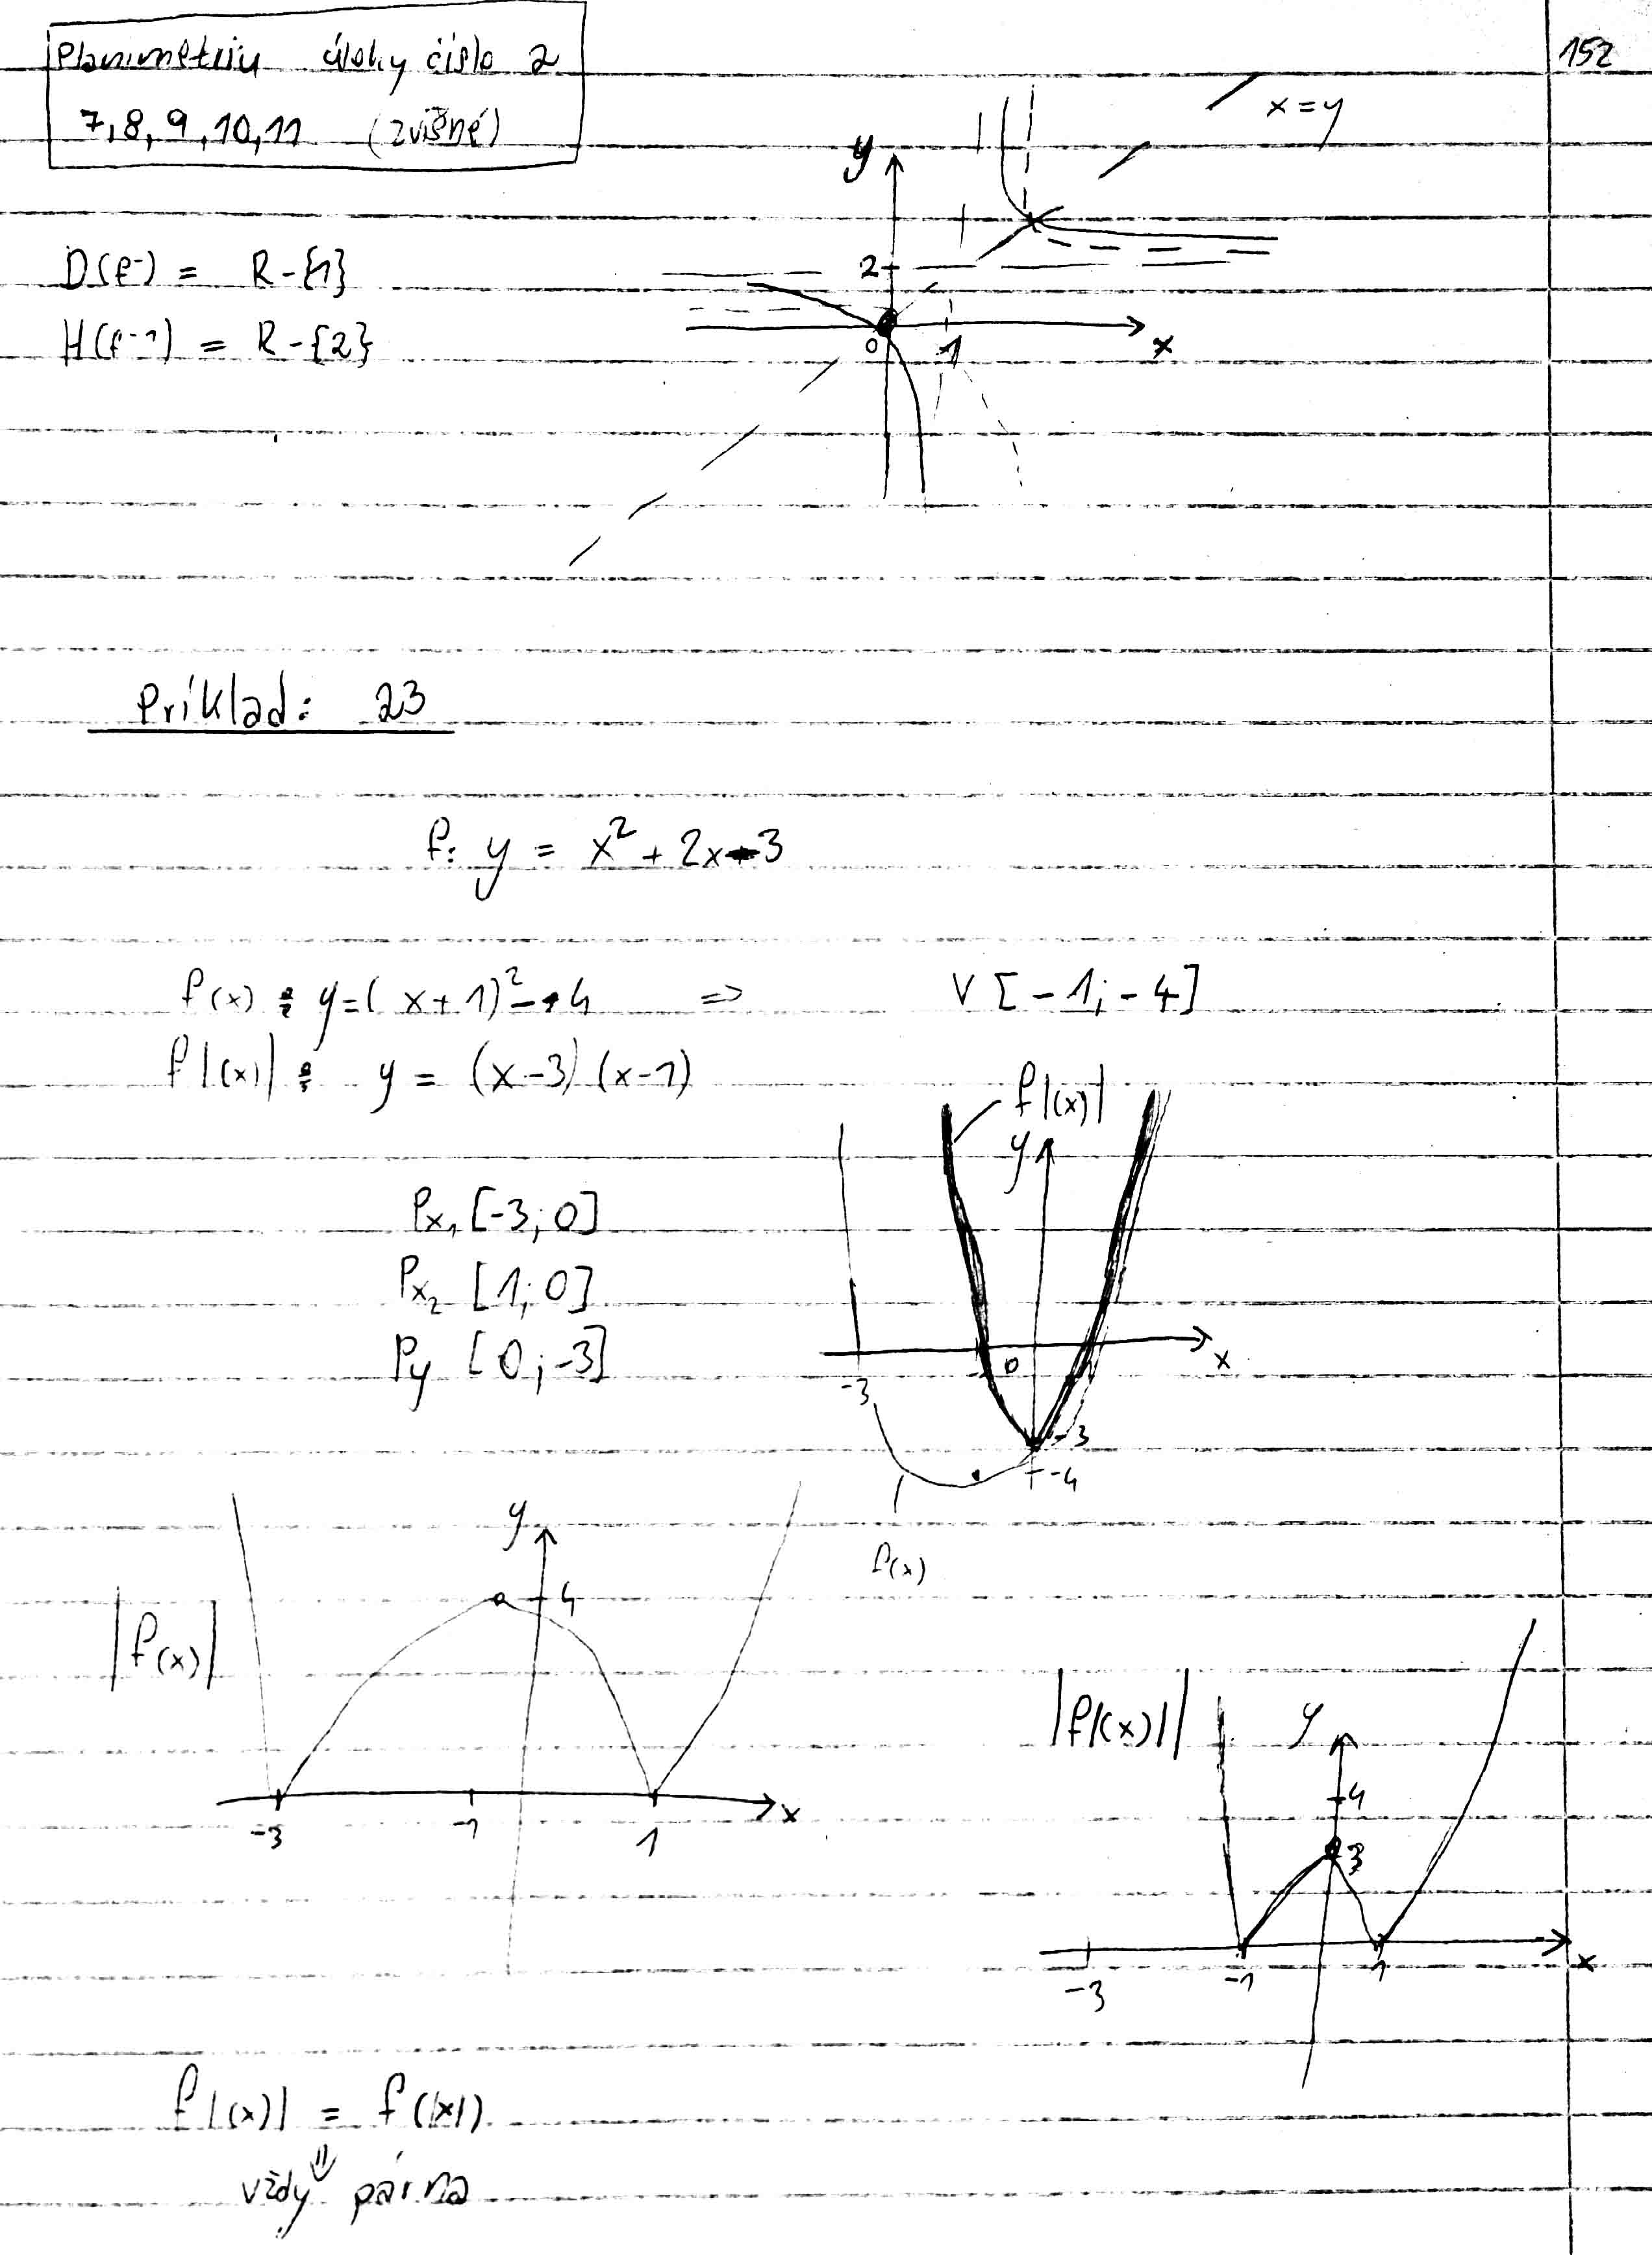 Planimetriu úlohy číslo 2
7, 8, 9, 10, 11 (zvišné)
152
x = y
y
2
0
1
x
D(f⁻) = R - {1}
H(f⁻¹) = R - {2}
Príklad: 23
f: y = x² + 2x - 3
f(x) : y = (x + 1)² - 4 => V [-1; -4]
f|(x)| : y = (x - 3) (x - 1)
f|(x)|
y
Px₁ [-3; 0]
Px₂ [1; 0]
Py [0; -3]
0
x
-3
-3
-4
f(x)
|f(x)|
y
4
-3
-1
1
x
|f|(x)||
y
4
3
-3
-1
1
x
f|(x)| = f(|x|)
⇓
vždy párna